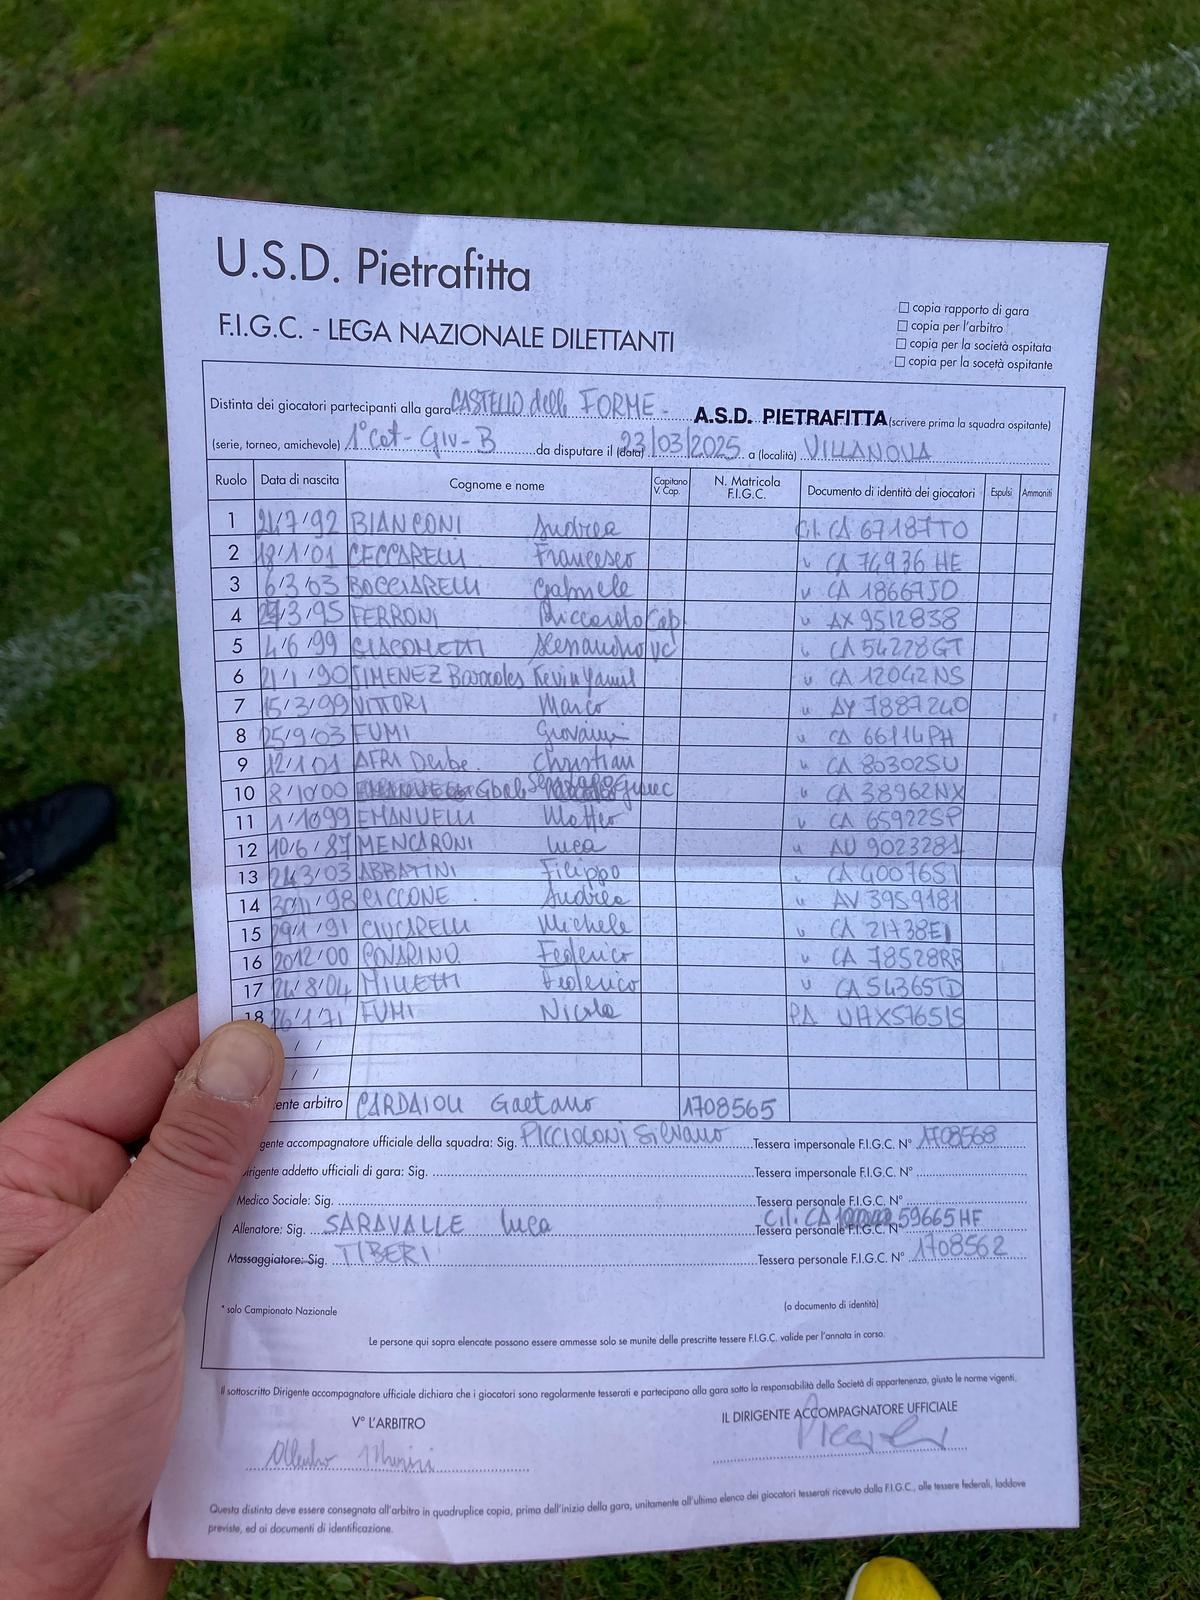 U.S.D. Pietrafitta
F.I.G.C. - LEGA NAZIONALE DILETTANTI
copia rapporto di gara
copia per l'arbitro
copia per la società ospitata
copia per la socetà ospitante
Distinta dei giocatori partecipanti alla gara CASTELLO delle FORME - A.S.D. PIETRAFITTA (scrivere prima la squadra ospitante)
(serie, torneo, amichevole) 1° Cat - Gir - B da disputare il (data) 23/03/2025 a (località) VILLANOVA
Ruolo Data di nascita Cognome e nome Capitano V. Cap. N. Matricola F.I.G.C. Documento di identità dei giocatori Espulsi Ammoniti
1 /7/92 BIANCONI Andrea C.I. CA 67187TO
2 18/1/01 CECCARELLI Francesco " CA 74936 HE
3 6/3/03 BOCCIARELLI Gabriele " CA 18667JO
4 /3/95 FERRONI Riccardo Cap " AX 9512838
5 4/6/99 GIACOMETTI Alessandro VC " CA 54228GT
6 21/1/90 JIMENEZ Kevin Yamil " CA 12042 NS
7 15/3/99 VITTORI Marco " AY 7887240
8 25/9/03 FUMI Giovanni " CA 66114PH
9 12/1/01 AFRA Christian " CA 80302SU
10 8/10/00 " CA 38962NX
11 1/10/99 EMANUELLI Matteo " CA 65922SP
12 10/6/87 MENCARONI Luca " AU 9023281
13 24/3/03 ABBATINI Filippo " CA 40076SI
14 30/11/98 PICCONE Andrea " AV 3959181
15 29/1/91 CIUCARELLI Michele " CA 21738EI
16 20/12/00 POVARINO Federico " CA 78528RB
17 24/8/04 MILLETTI Federico " CA 54365TD
18 26/1/71 FUMI Nicola PA UHX5765IS
/ /
/ /
ente arbitro CARDAIOLI Gaetano 1708565
gente accompagnatore ufficiale della squadra: Sig. PICCIOLONI Silvano Tessera impersonale F.I.G.C. N° 1708568
irigente addetto ufficiali di gara: Sig. Tessera impersonale F.I.G.C. N°
Medico Sociale: Sig. Tessera personale F.I.G.C. N°
Allenatore: Sig. SARAVALLE Luca Tessera personale F.I.G.C. N° C.I. CA 59665HF
Massaggiatore: Sig. TIBERI Tessera personale F.I.G.C. N° 1708562
* solo Campionato Nazionale (o documento di identità)
Le persone qui sopra elencate possono essere ammesse solo se munite delle prescritte tessere F.I.G.C. valide per l'annata in corso.
Il sottoscritto Dirigente accompagnatore ufficiale dichiara che i giocatori sono regolarmente tesserati e partecipano alla gara sotto la responsabilità della Società di appartenenza, giusto le norme vigenti.
V° L'ARBITRO IL DIRIGENTE ACCOMPAGNATORE UFFICIALE
Questa distinta deve essere consegnata all'arbitro in quadruplice copia, prima dell'inizio della gara, unitamente all'ultimo elenco dei giocatori tesserati ricevuto dalla F.I.G.C., alle tessere federali, laddove
previste, ed ai documenti di identificazione.